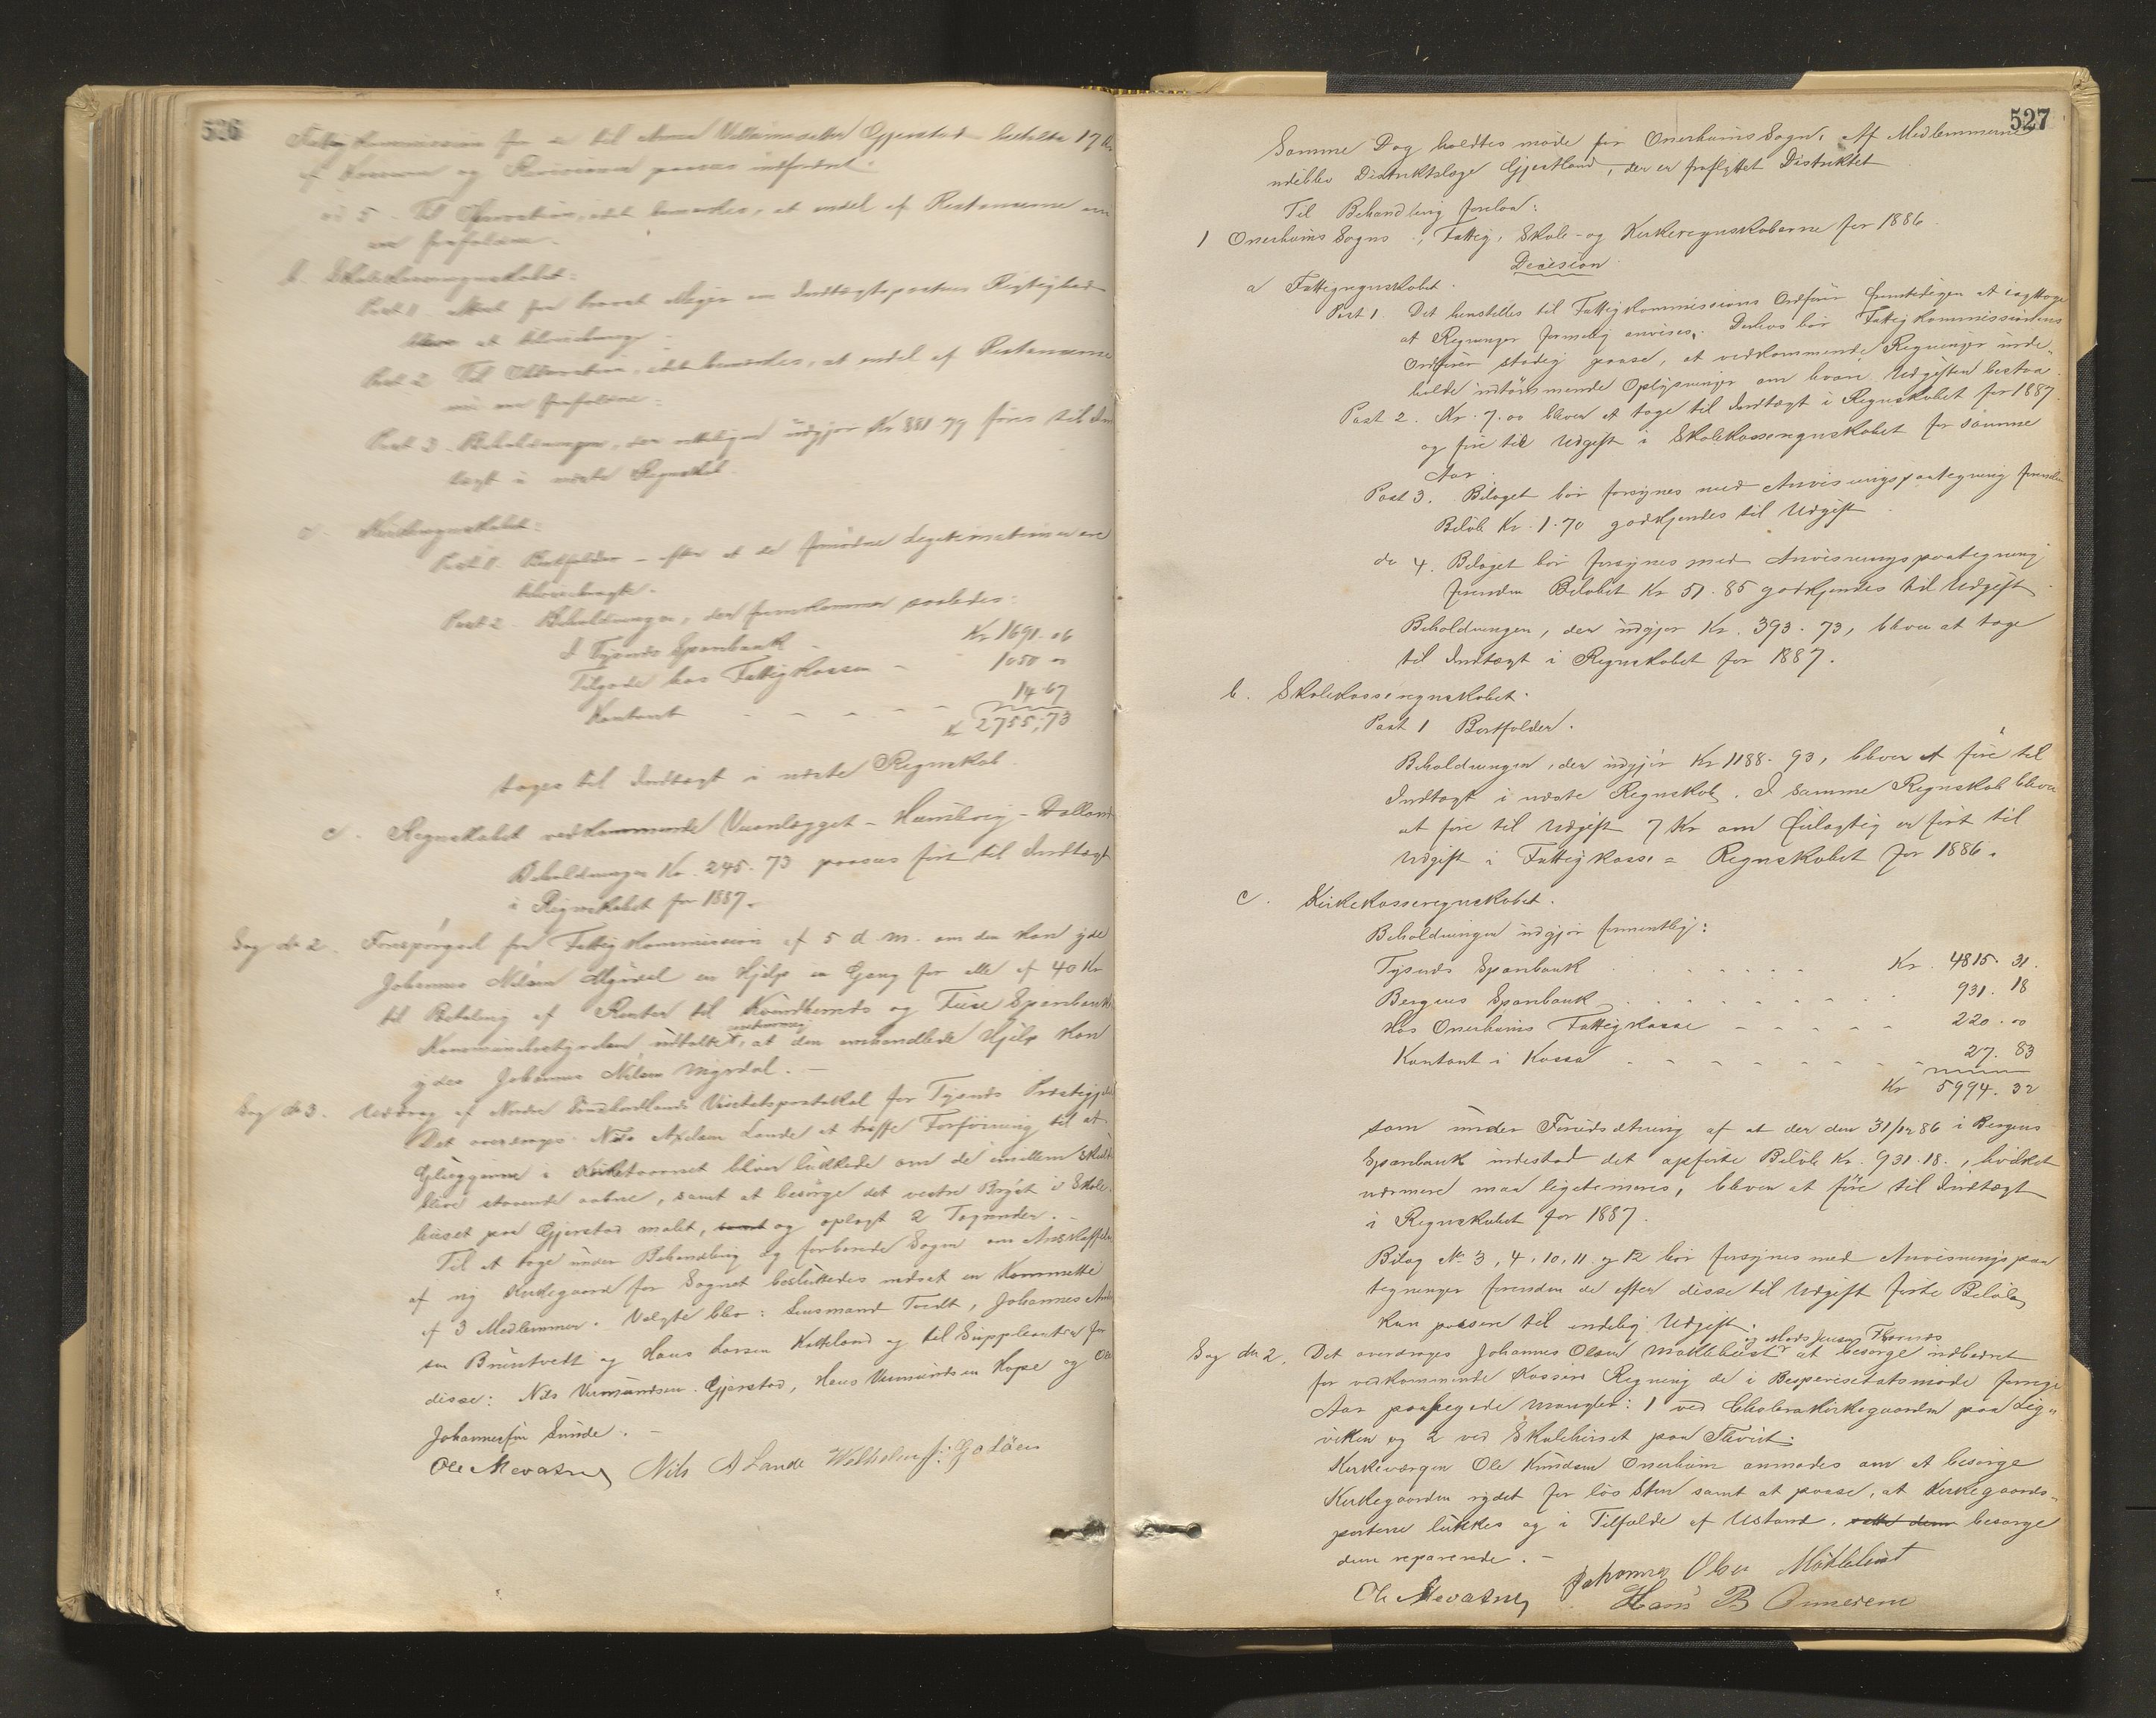 526
Fattigkommissionen for a til Anna Gjerstad betalte 17 Kr
af Kassereren og Revisionen paases indfordret.
ad 5. Til Observation, idet bemærkes, at endel af Restancerne
er frafaldne.
b. Skolekasseregnskabet:
Post 1. Attest fra Meyer om Indtægtspostens Rigtighed
bliver at tilveiebringe
Post 2. Til Observation, idet bemærkes, at endel af Restancerne
nu er frafaldne.
Post 3. Beholdningen, der udgjør Kr 881.79 føres til Ind
tægt i næste Regnskab.
c. Kirkeregnskabet:
Post 1. Bortfalder – efter at de fornødne Legitimationer ere
tilveiebragte.
Post 2. Beholdningen, der fremkommer saaledes:
I Tysnes Sparebank Kr 1691.06
Tilgode hos Fattigkassen – 1050 00
Kontant – – – – 14.67
Kr 2755,73
tages til Indtægt i næste Regnskab.
d. Regnskabet vedkommende Veianlægget – Humlevig – Dalland
Beholdningen Kr. 245.73 paases ført til Indtægt
i Regnskabet for 1887.
Sag No 2. Forespørgsel fra Fattigkommissionen af 5 d. m. om den kan yde
Johannes Nilsen Myrdal en Hjelp en Gang for alle af 40 Kr
til Betaling af Renter til Kvindherreds og Fuse Sparebank
Kommunebestyrelsen udtalte enstemmig, at den omhandlede Hjelp kan
ydes Johannes Nilsen Myrdal. –
Sag No 3. Uddrag af Nordre Søndhordlands Visitatsprotokol for Tysnes Præstegjeld
Det overdroges Nils Axelsen Lande at træffe Forføining til at
Gluggerne i Kirketaarnet bliver lukkede om de imellem skulde
blive staaende aabne, samt at besørge det vestre Bryst i Skole-
huset paa Gjerstad malt, samt og oplagt 2 Tagrender. –
Til at tage under Behandling og forberede Sagen om Anskaffelse
af ny Kirkegaard for Sognet besluttedes nedsat en Kommitte
af 3 Medlemmer. Valgte blev: Lensmand Tvedt, Johannes
sen Bruntveit og Hans Larsen Kalteland og til Suppleanter for
disse: Nils Vermundsen Gjerstad, Hans Vermundsen Hope og Ole
Johannessen Sunde. –
Ole Mevatne Nils A Lande Wilhelm J: Godøen
527
Samme Dag holdtes møde for Onerheims Sogn. Af Medlemmerne
udeblev Distriktslæge Gjestland, der er fraflyttet Distriktet
Til Behandling forelaa:
1 Onerheims Sogns Fattig, Skole- og Kirkeregnskaberne for 1886
Decision
a Fattigregnskabet.
Post 1. Det henstilles til Fattigkommissionens Ordfører fremtidigen at iagttage
at Regninger formelig anvises. Derhos bør Fattigkommissionens
Ordfører stadig paase, at vedkommende Regninger inde-
holde udtømmende Oplysninger om hvori Udgiften bestaa.
Post 2. Kr. 7.00 bliver at tage til Indtægt i Regnskabet for 1887
og føre til Udgift i Skolekasseregnskabet for samme
Aar.
Post 3. Bilaget bør forsynes med Anvisningspaategning forinden
Beløb Kr. 1.70 godkjendes til Udgift
do 4. Bilaget bør forsynes med Anvisningspaategning
forinden Beløbet Kr 51.85 godkjendes til Udgift.
Beholdningen, der udgjør Kr. 393.73, bliver at tage
til Indtægt i Regnskabet for 1887.
b. Skolekasseregnskabet.
Post 1 Bortfalder.
Beholdningen, der udgjør Kr 1188.93, bliver at føre til
Indtægt i næste Regnskab. I samme Regnskab bliver
at føre til Udgift 7 Kr som feilagtig er ført til
Udgift i Fattigkasse = Regnskabet for 1886.
c. Kirkekasseregnskabet.
Beholdningen udgjør formentlig:
Tysnes Sparebank . . . . . Kr. 4815.31.
Bergens Sparebank . . . . . 931.18
Hos Onerheims Fattigkasse – – – – – 220.00
Kontant i Kassa . – – – – – 27.83
Kr 5994.32
som under Forudsætning af at der den 31/12 86 i Bergens
Sparebank indestod det opførte Beløb Kr. 931.18., hvilket
nærmere maa legitimeres, bliver at føre til Indtægt
i Regnskabet for 1887.
Bilag No 3, 4, 10, 11 og 12 bør forsynes med Anvisningspaa
tegninger forinden de efter disse til Udgift førte Beløb
kan passere til endelig Udgift.
Sag No 2. Det overdroges Johannes Olsen Maklebust og Mads Jensen Flornes at besørge udbedret
for vedkommende Kassers Regning de i Bispevisitatsmøde forrige
Aar paapegede Mangler: 1 ved Cholerakirkegaarden paa Leg-
viken og 2 ved Skolehuset paa Flornes.
Kirkeværgen Ole Knudsen Onerheim anmodes om at besørge
Kirkegaarden rydet for løs Sten samt at paase, at Kirkegaards-
porterne lukkes og i Tilfælde af Ustand. besørge
dem reparerede. –
Ole Mevatne Johannes Olsen Maklebust
Hans B Onnereim